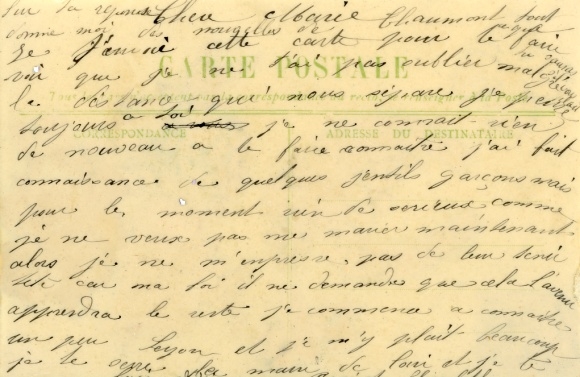 sur ta reponse Chere Marie Chaumont tout
donne moi des nouvelles de
Je t'envoie cette carte pour te faire
voir que je ne t'ai pas oublier malgré
CARTE POSTALE
la distance qui nous sépare je pense
toujours a toi je ne connait rien
CORRESPONDANCE ADRESSE DU DESTINATAIRE
de nouveau a te faire connaitre j'ai fait
connaissance de quelques jentils garçons mais
pour le moment rien de serieux comme
je ne veux pas me marier maintenant
alors je ne m'empresse pas de leur tenir
tete car ma foi il ne demande que cela l'avenir
apprendra le reste je commence a connaitre
un peu Lyon et je m'y plait beaucoup
je te serre la main de loin et je te